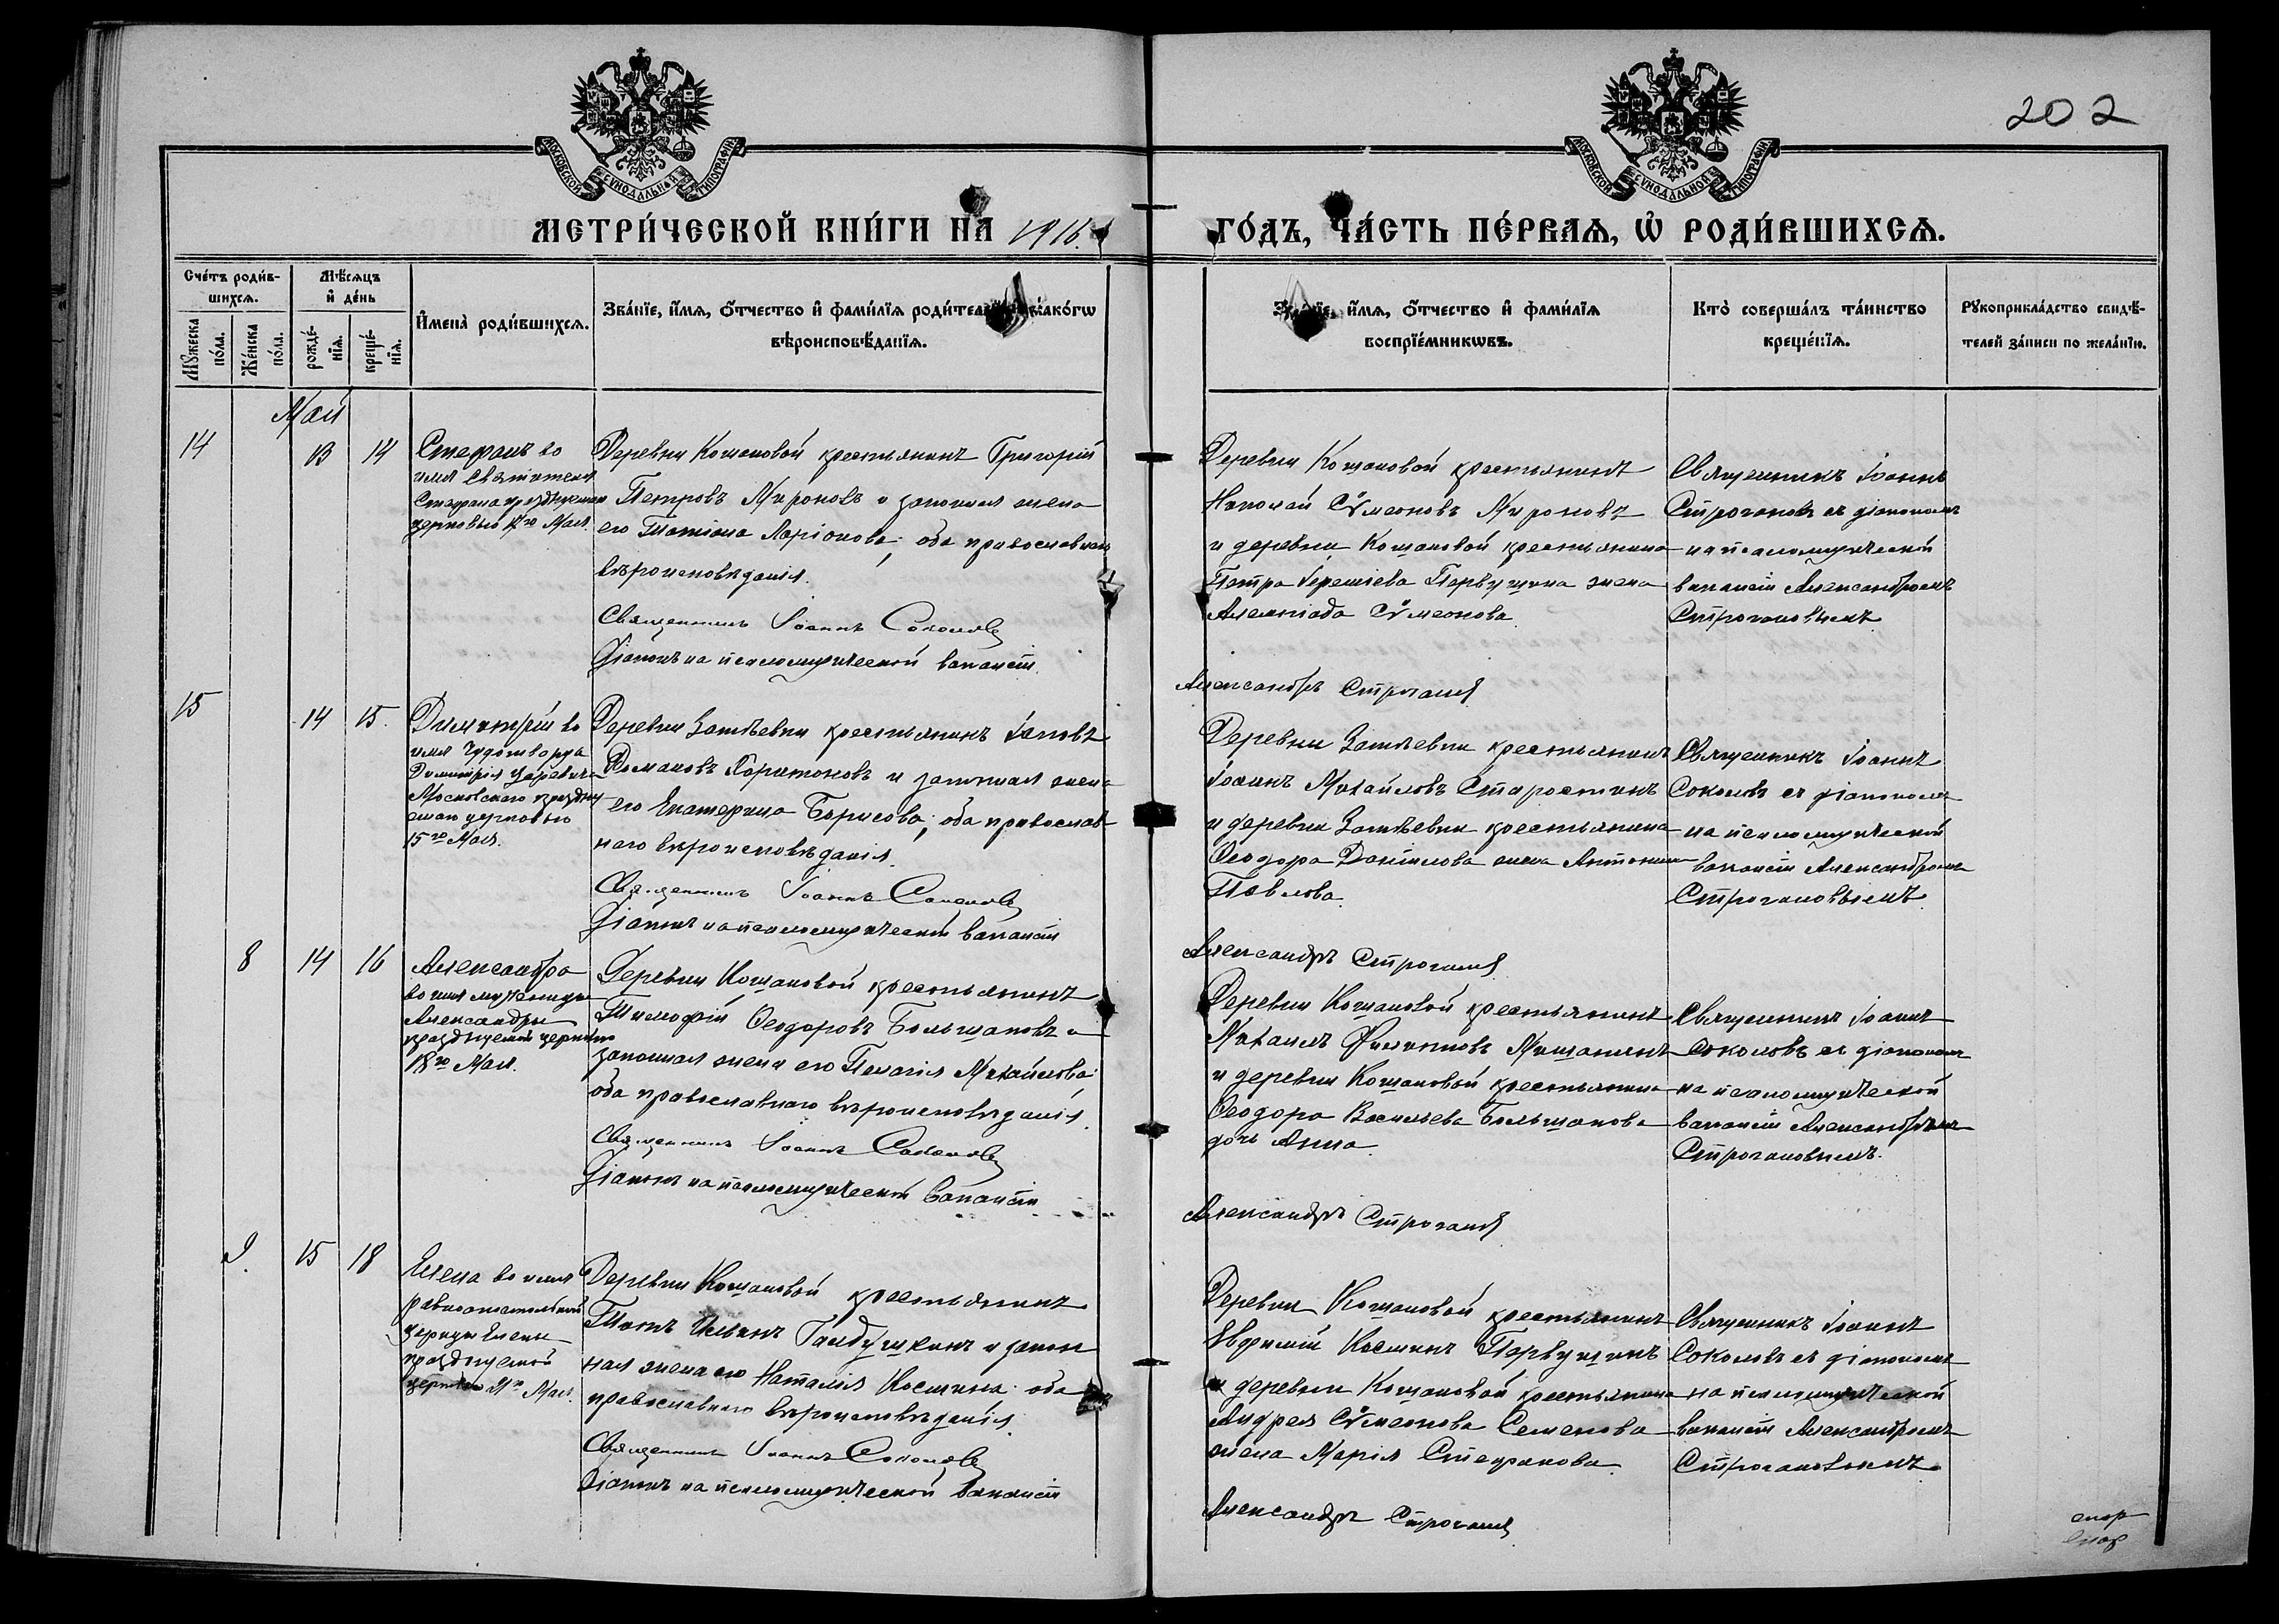 202
МОСКОВСКОЙ СУНОДАЛЬНОЙ ТИПОГРАФІИ
МОСКОВСКОЙ СУНОДАЛЬНОЙ ТИПОГРАФІИ
МЕТРИ́ЧЕСКОЙ КНИ́ГИ НА 1916.
ГО́ДЪ, ЧА́СТЬ ПЕ́РВАѦ, Ѡ РОДИ́ВШИХСѦ.
Сче́тъ роди́в-
шихсѧ.
Мѣ́сѧцъ
и де́нь
Мꙋжеска
по́ла.
Же́нска
по́ла.
рожде́-
нїѧ.
креще́-
нїѧ.
И҆мена̀ роди́вшихсѧ.
Зва́нїе, и҆́мѧ, ѻ҆́тчество и҆ фами́лїѧ родителей, и како́гѡ
вѣроисповѣ́данїѧ.
Зва́нїе, и҆́мѧ, ѻ҆́тчество и҆ фами́лїѧ
воспрїе́мникѡвъ.
Кто̀ соверша́лъ та́инство
креще́нїѧ.
Рꙋкоприкла́дство свидѣ́-
телей за́писи по жела́нїю.
Май
14
13 14
Стефанъ во
имя Святителя
Стефана празднуемаго
церковью 17го Мая.
Деревни Кошановой крестьянинъ Григорій
Петровъ Мироновъ и законная жена
его Татіана Ларіонова; оба православнаго
вѣроисповѣданія.
Священникъ Іоаннъ Соколовъ
Діаконъ на псаломщической вакансіи
Деревни Кошановой крестьянинъ
Николай Сѵмеоновъ Мироновъ
и деревни Кошановой крестьянина
Петра Іереміева Первушина жена
Алемпіада Сѵмеонова.
Александръ Строгановъ
Священникъ Іоаннъ
Строгановъ съ діакономъ
на псаломщической
вакансіи Александромъ
Строгановымъ
15
14 15.
Димитрій во
имя Чудотворца
Димитрія Царевича
Московскаго праздну
емаго церковью
15го Мая.
Деревни Затѣевки крестьянинъ Іаковъ
Романовъ Харитоновъ и законная жена
его Екатерина Борисова; оба православ-
наго вѣроисповѣданія.
Священникъ Іоаннъ Соколовъ
Діаконъ на псаломщической вакансіи
Деревни Затѣевки крестьянинъ
Іоаннъ Михайловъ Старостинъ
и деревни Затѣевки крестьянина
Ѳеодора Даніилова жена Антонина
Павлова.
Александръ Строгановъ
Священникъ Іоаннъ
Соколовъ съ діакономъ
на псаломщической
вакансіи Александромъ
Строгановымъ.
8
14 16
Александра
во имя мученицы
Александры
празднуемой церковью
18го Мая.
Деревни Кошановой крестьянинъ
Тимофій Ѳеодоровъ Большаковъ и
законная жена его Пелагія Михайлова:
оба православнаго вѣроисповѣданія.
Священникъ Іоаннъ Соколовъ
Діаконъ на псаломщической вакансіи
Деревни Кошановой крестьянинъ
Михаилъ Филипповъ Мишанинъ
и деревни Кошановой крестьянина
Ѳеодора Васильева Большакова
дочь Анна.
Александръ Строгановъ
Священникъ Іоаннъ
Соколовъ съ діакономъ
на псаломщической
вакансіи Александромъ
Строгановымъ.
9.
15 18
Елена во имя
равноапостольной
царицы Елены
празднуемой
церковью 21го Мая.
Деревни Кошановой крестьянинъ
Ильинъ Галдушкинъ и закон
ная жена его Наталія Космина: оба
православнаго вѣроисповѣданія.
Священникъ Іоаннъ Соколовъ
Діаконъ на псаломщической вакансіи
Деревни Кошановой крестьянинъ
Евфимій Косминъ Первушинъ
и деревни Кошановой крестьянина
Андрея Сѵмеонова Семенова
жена Марія Стефанова.
Александръ Строгановъ
Священникъ Іоаннъ
Соколовъ съ діакономъ
на псаломщической
вакансіи Александромъ
Строгановымъ